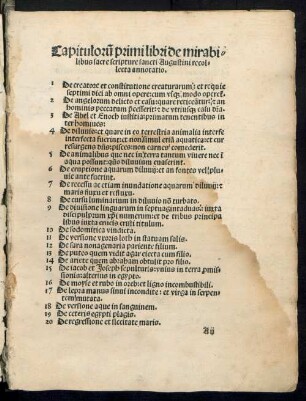 Capitulorũ primi libri de mirabi⸗
libus sacre scripture sancti Augustini recol⸗
lecta annotatio.
1 De creatore et constitutione creaturarum: et requie
septimi diei ab omni opere: cum vsq; modo operet̃.
2 De angelorum delicto et casu: quare reticeãtur: et an
hominis peccatum precesserit: de vtriusq; casu dis
3 De Abel et Enoch iusticia primatum tenentibus in
ter homines:
4 De diluuio: et quare in eo terrestria animalia interfe
interfecta fuerint: et non simul etiã aquatica: et cur
resurgens ducis pisces: non carnes comederit.
5 De animalibus que nec in terra tantum viuere nec ĩ
aqua possunt: qũo diluuium euaserint.
6 De eruptione aquarum diluuij: et an fontes vel plu⸗
uie ante fuerint.
7 De recessu ac etiam inundatione aquarum diluuij: et
maris fluxu et refluxu.
8 De cursu luminarium in diluuio nõ turbato.
9 De diuisione linguarum in septuagintaduas iuxta
discipulorum xp̃i numerum: et de tribus principa
libus iuxta crucis cristi titulum.
10 De sodomitica vindicta.
11 De versione vxoris loth in statuam salis.
12 De sara nonagenaria pariente filium.
13 De puteo quem vidit agar eiecta cum filio.
14 De ariete quem abraham obtulit pro filio.
15 De iacob et Joseph sepultura: vnius in terra, pmis
sionis: alterius in egypto.
16 De moyse et rubo in oreb: et ligno incombustibili.
17 De lepra manus sinu incondite: et virga in serpen
tem mutata.
18 De versione aque in sanguinem.
19 De ceteris egypti plagis.
20 De regressione et siccitate maris.
Aij